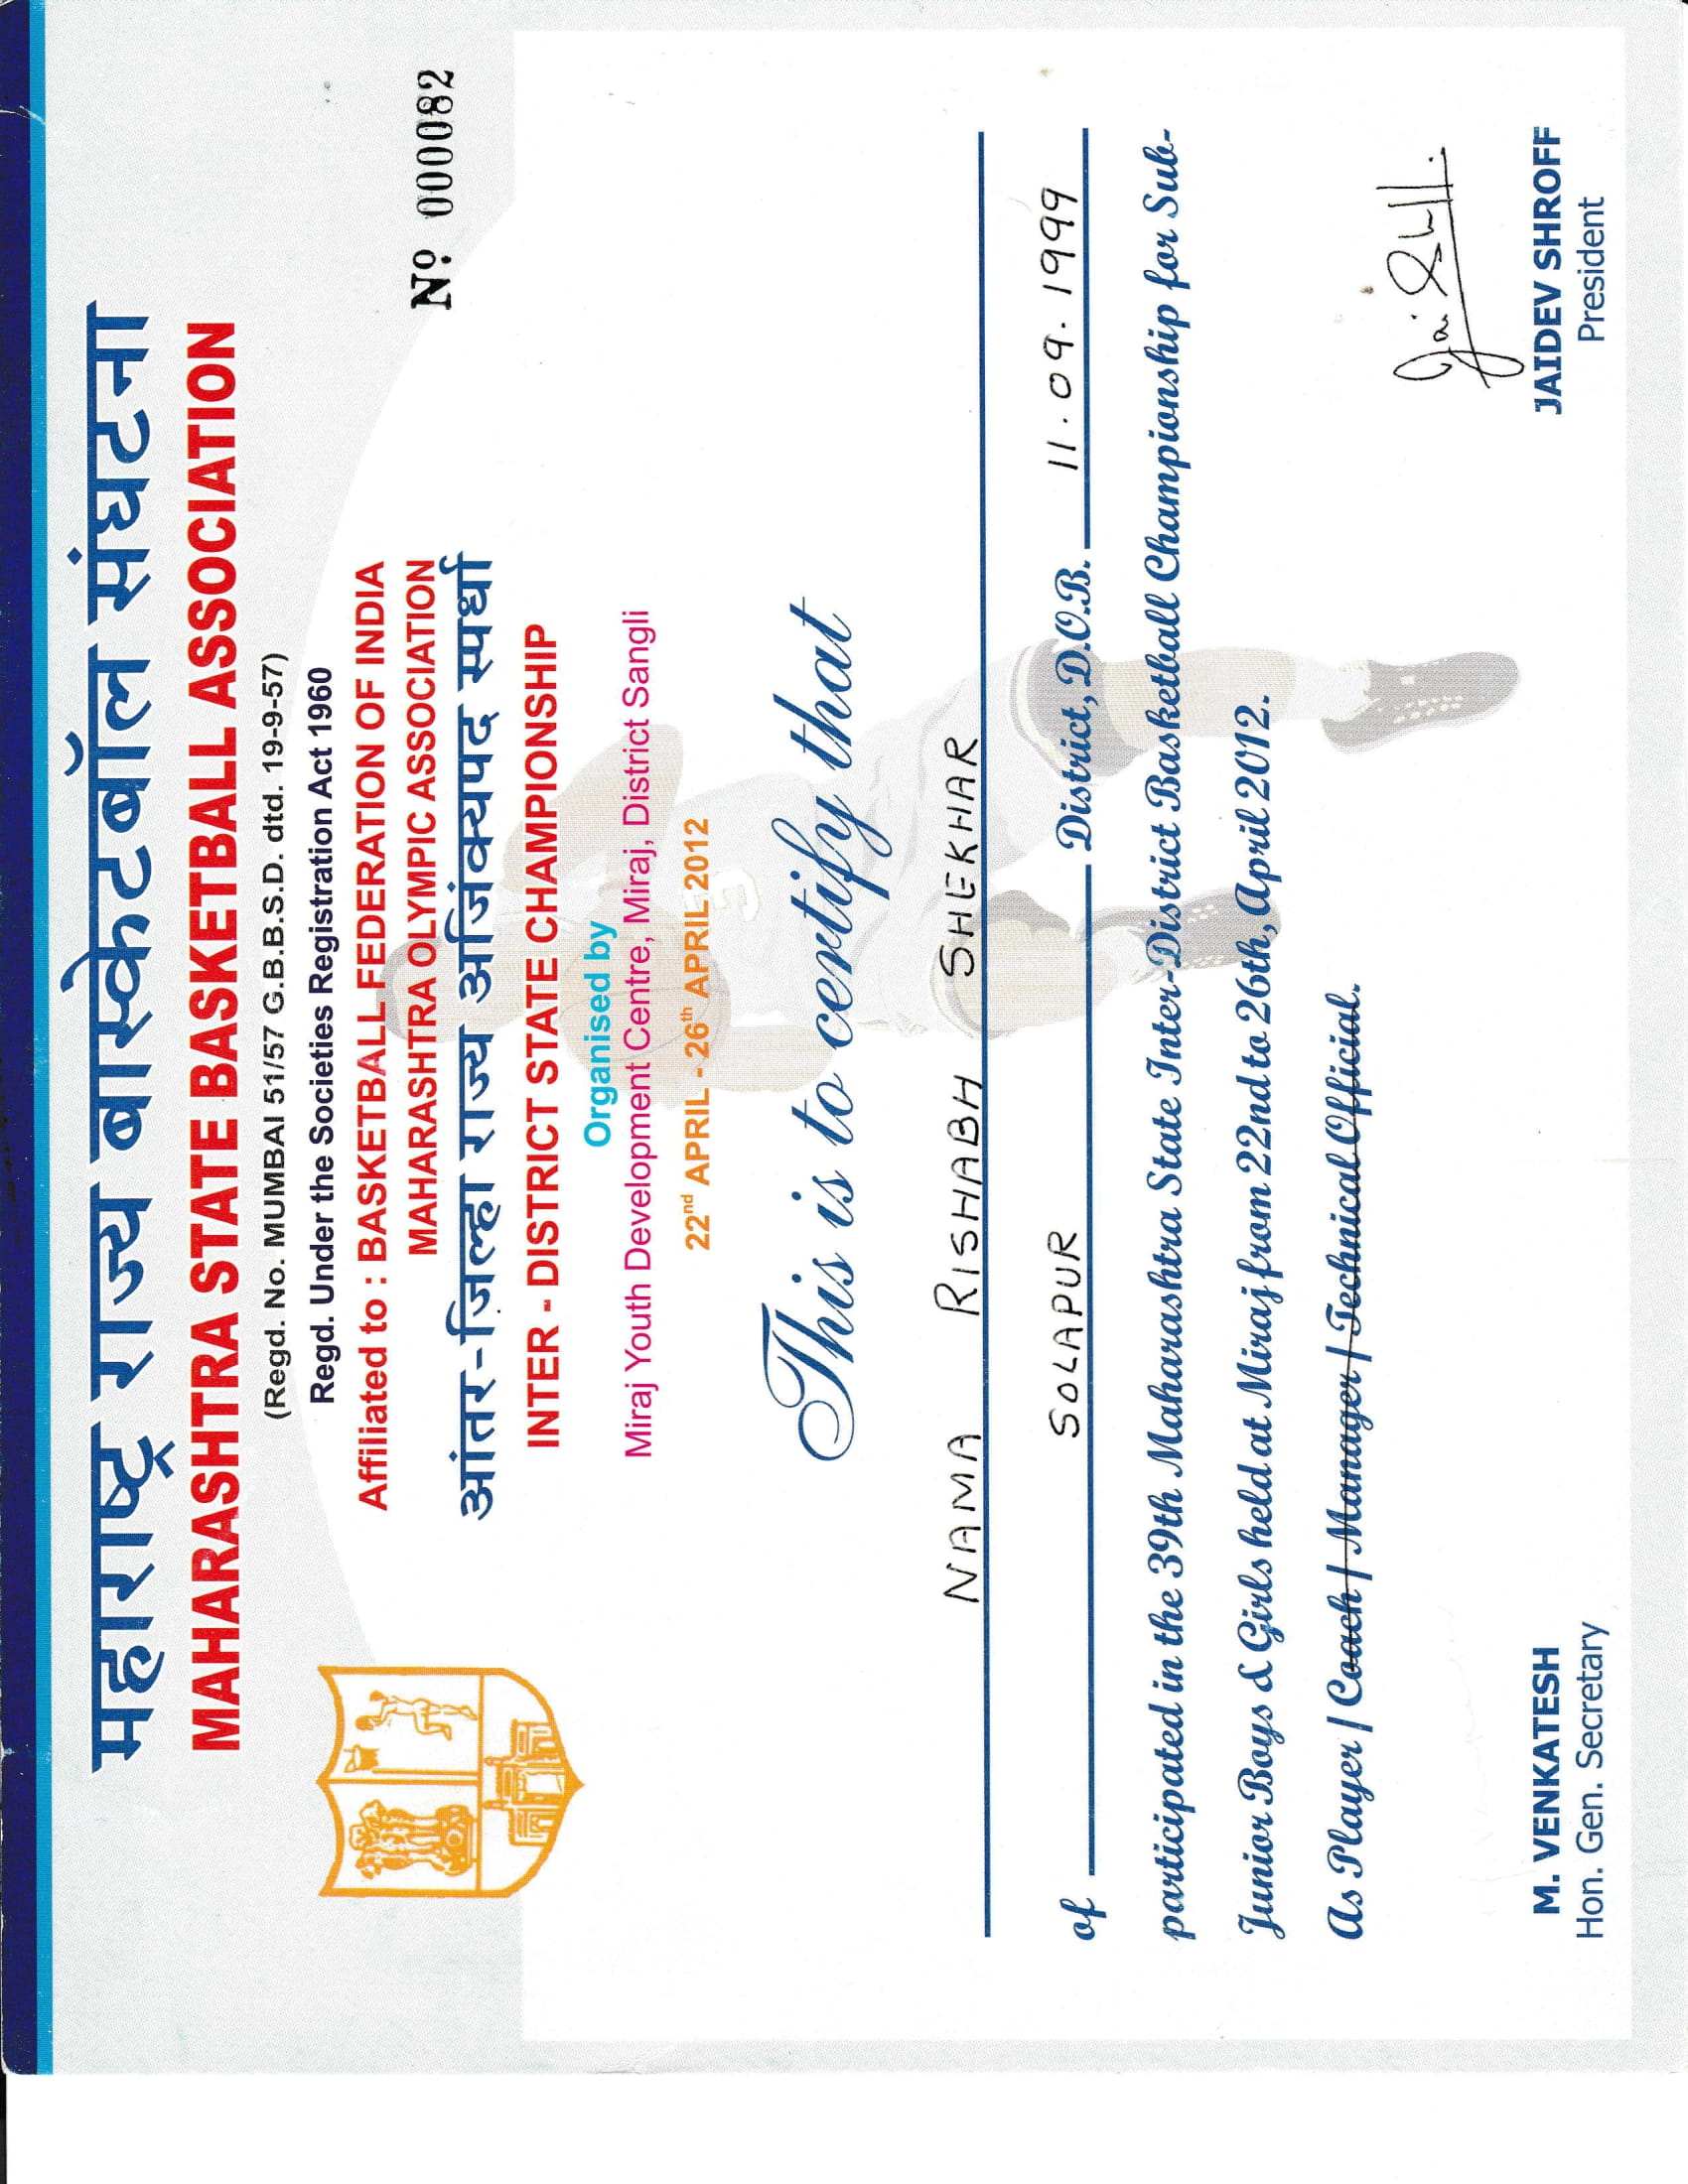 महाराष्ट्र राज्य बास्केटबॉल संघटना
MAHARASHTRA STATE BASKETBALL ASSOCIATION
(Regd. No. MUMBAI 51/57 G.B.B.S.D. dtd. 19-9-57)
Regd. Under the Societies Registration Act 1960
Affiliated to : BASKETBALL FEDERATION OF INDIA
MAHARASHTRA OLYMPIC ASSOCIATION
Nº 000082
आंतर-जिल्हा राज्य अजिंक्यपद स्पर्धा
INTER - DISTRICT STATE CHAMPIONSHIP
Organised by
Miraj Youth Development Centre, Miraj, District Sangli
22nd APRIL - 26th APRIL 2012
This is to certify that
NAMA RISHABH SHEKHAR
of SOLAPUR District, D.O.B. 11.09.1999
participated in the 39th Maharashtra State Inter-District Basketball Championship for Sub-
Junior Boys & Girls held at Miraj from 22nd to 26th, April 2012.
As Player / Coach / Manager / Technical Official.
Jai Shroff.
M. VENKATESH
Hon. Gen. Secretary
JAIDEV SHROFF
President